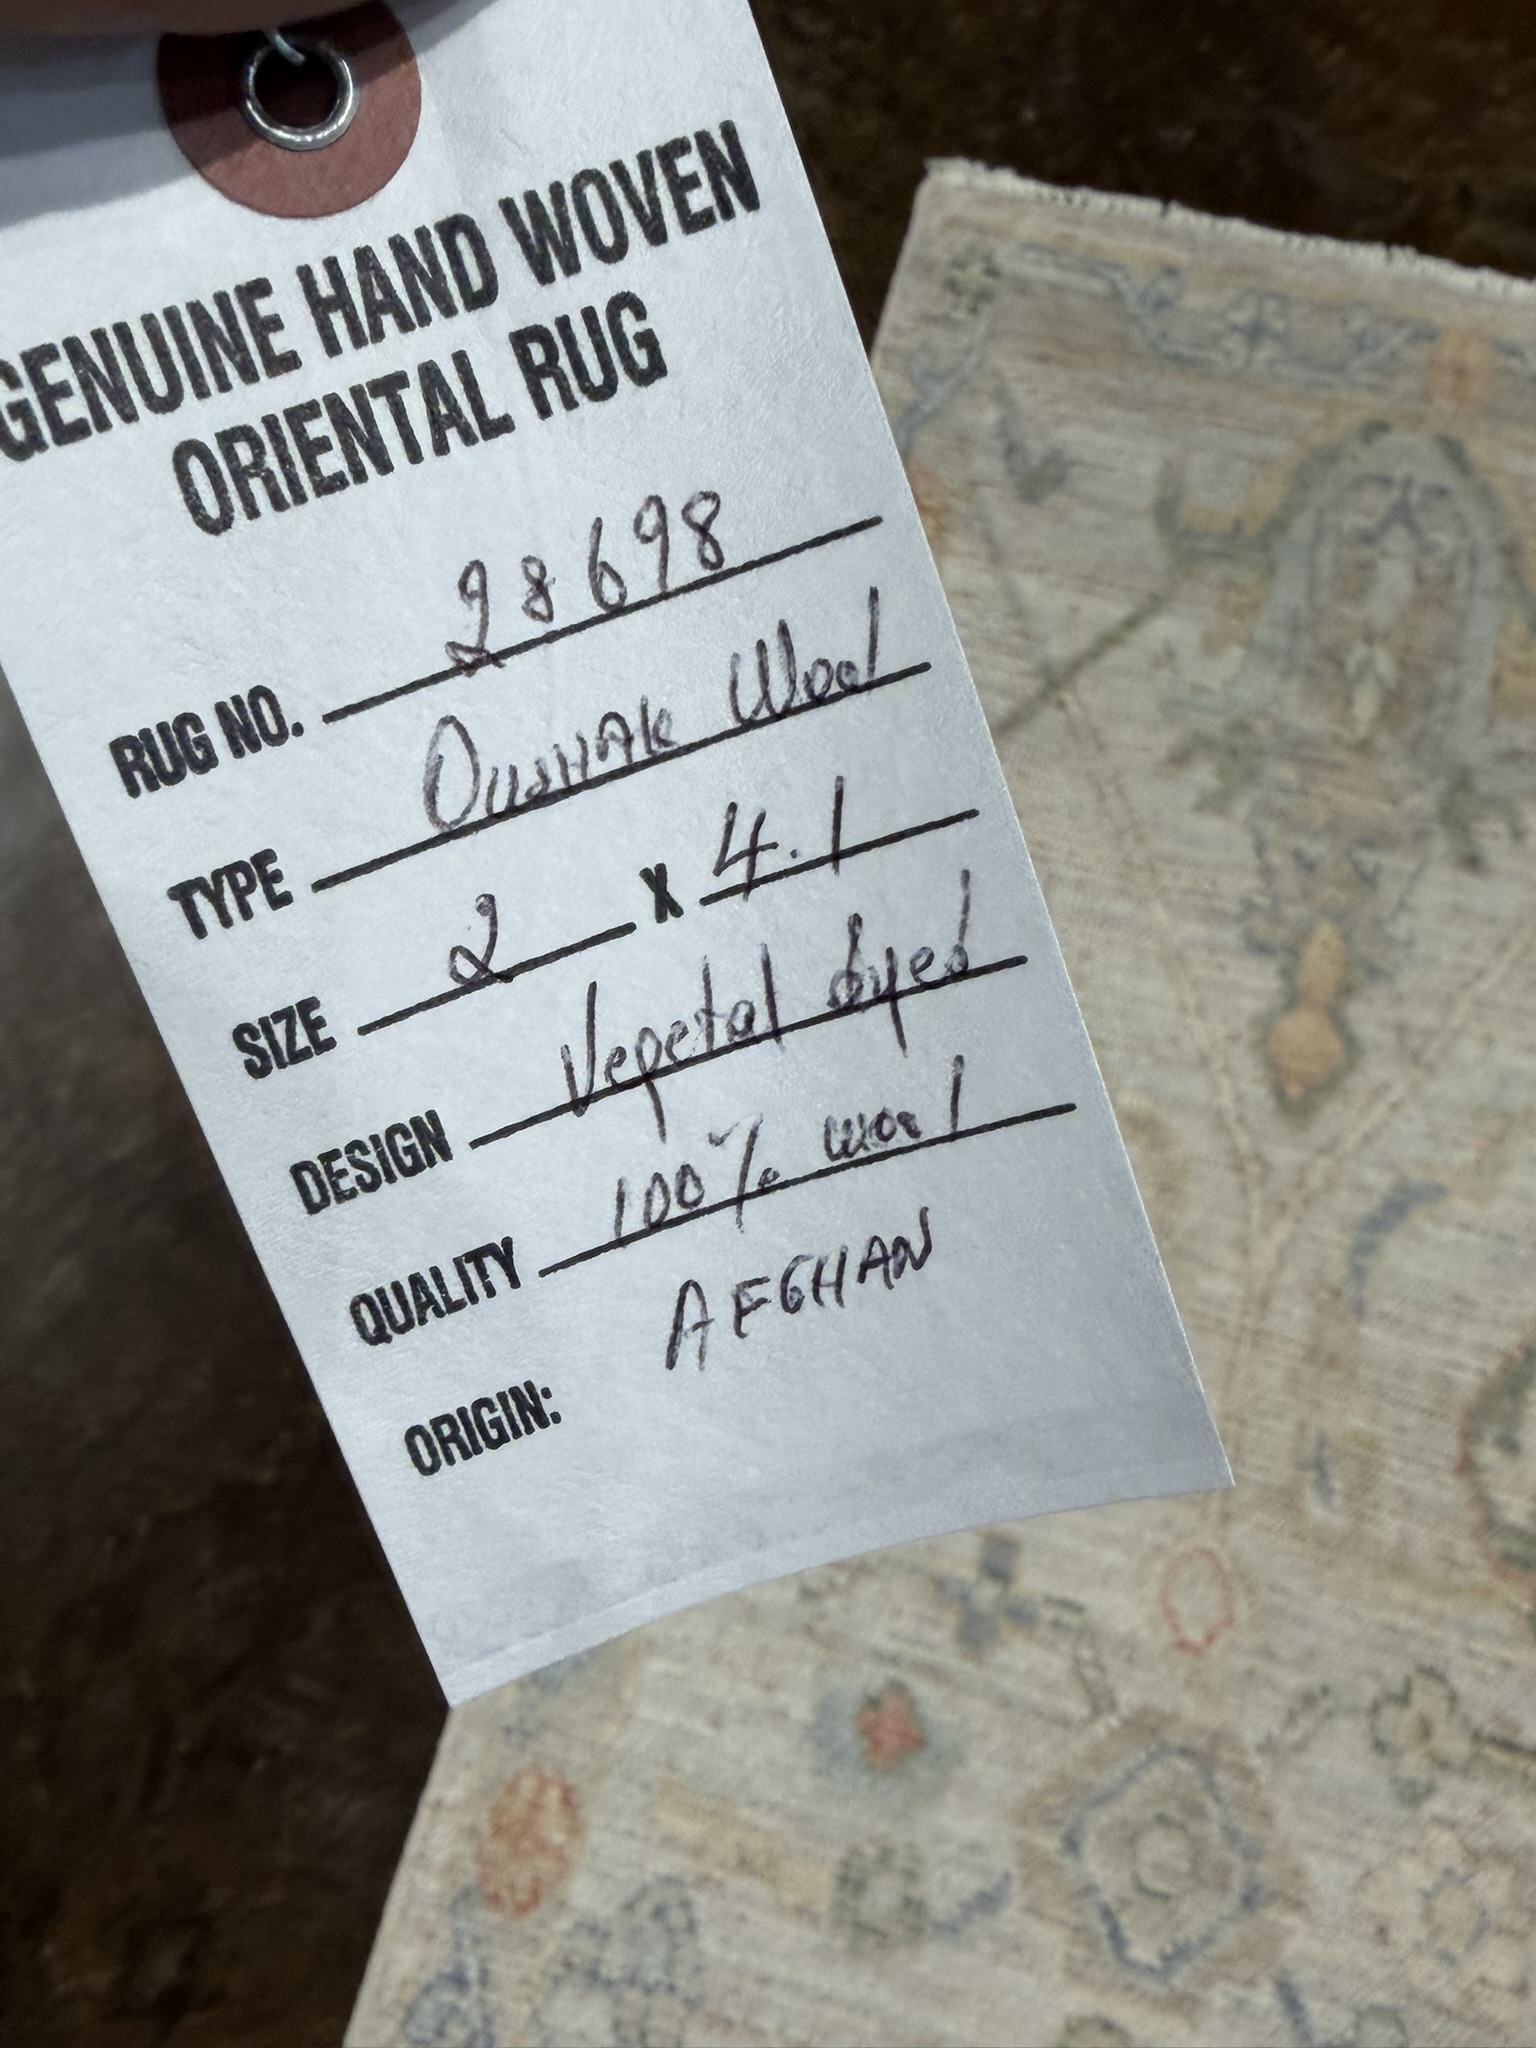 GENUINE HAND WOVEN
ORIENTAL RUG
RUG NO. 28698
TYPE OUSHAK Wool
SIZE 2 X 4.1
DESIGN Vegetal dyed
QUALITY 100% wool
ORIGIN: AFGHAN